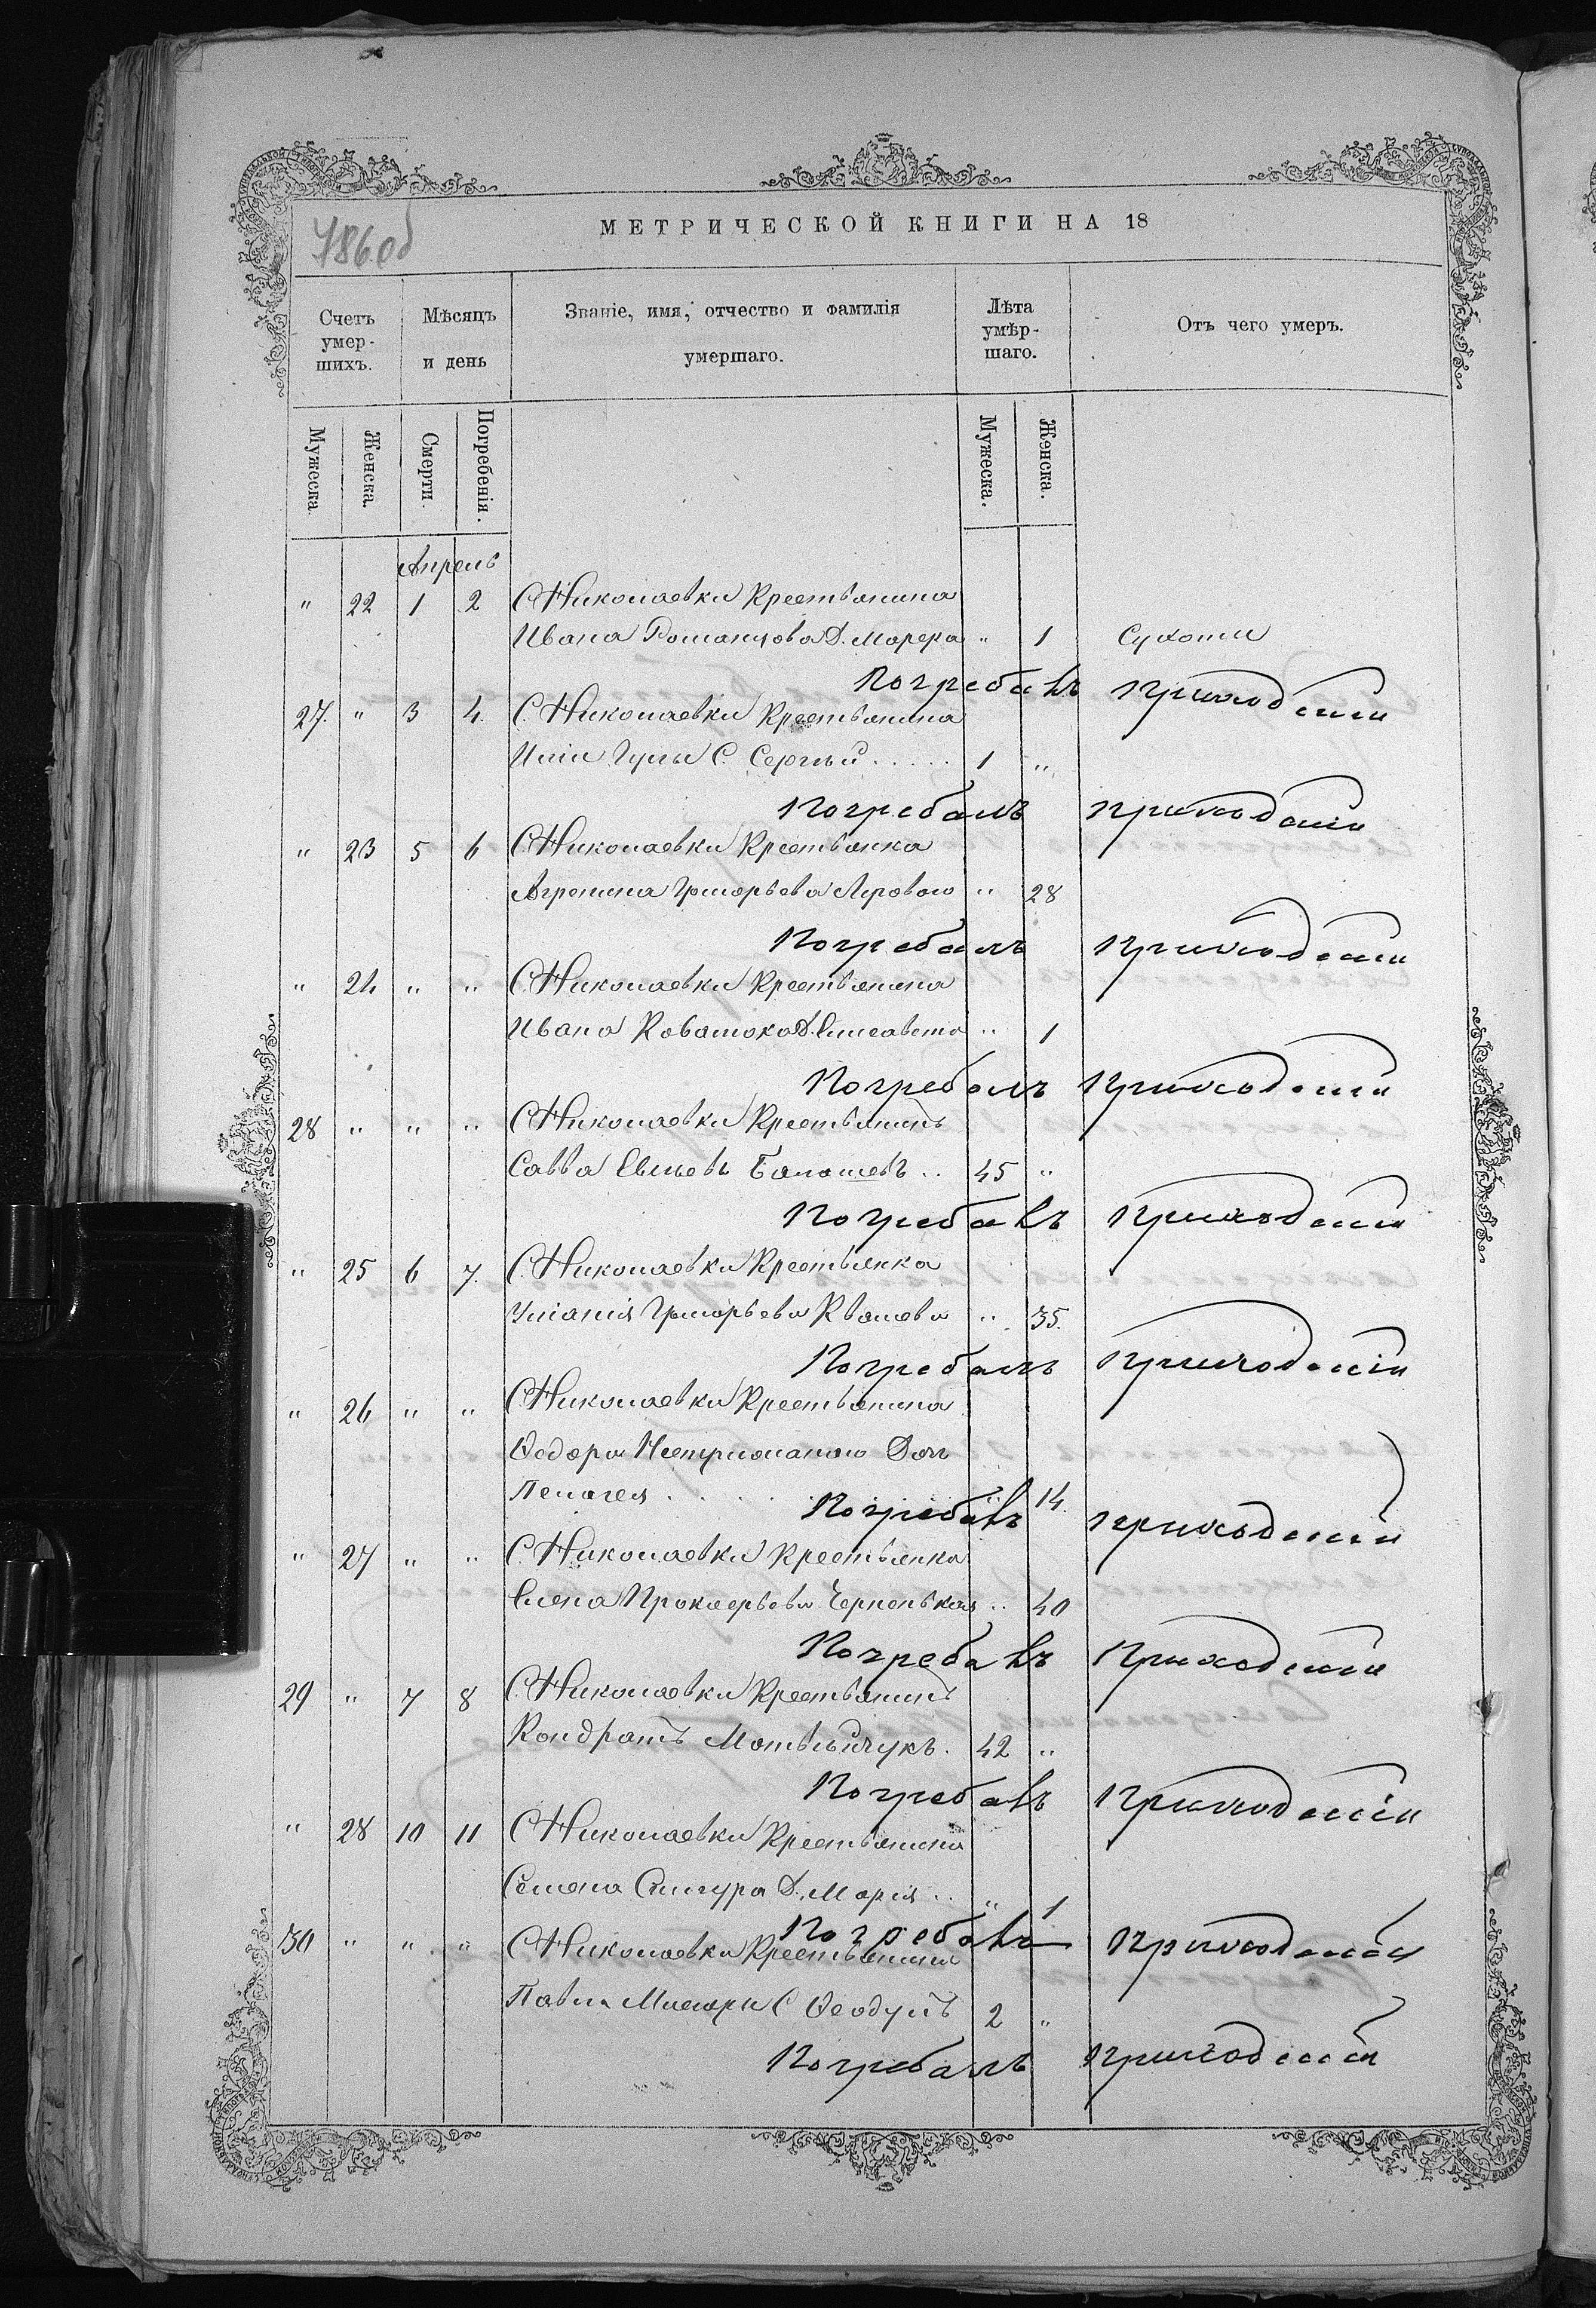 786 об
МЕТРИЧЕСКОЙ КНИГИ НА 18
Счетъ умер-шихъ. Мѣсяцъ и день Званіе, имя, отчество и фамилія умершаго. Лѣта умѣр-шаго. Отъ чего умеръ.
Мужеска. Женска. Смерти. Погребенія. Мужеска. Женска.
Апрель
" 22 1 2 С. Николаевки Крестьянина
Ивана Романцова Д. " 1 Сухоти
Погребалъ приходскій
27. " 3 4. С. Николаевки Крестьянина
Иліи Гулы С. Сергѣй 1 "
Погребалъ приходскій
" 23 5 6 С. Николаевки Крестьянка
Агрепина Григорьева " 28
Погребалъ приходскій
" 24 " " С. Николаевки Крестьянина
Ивана Ковалюка Д. Елисавета " 1
Погребалъ приходскій
28 " " " С. Николаевки Крестьянинъ
Савва Балашевъ 45 "
Погребалъ приходскій
" 25 6 7. С. Николаевки Крестьянка
Уліанія Григорьева Квашева " 35.
Погребалъ приходскій
" 26 " " С. Николаевки Крестьянина
Ѳедора Дочь
Пелагея " 14.
Погребалъ приходскій
" 27 " " С. Николаевки Крестьянка
Елена Прокофьева Черненькая " 40
Погребалъ приходскій
29 " 7 8 С. Николаевки Крестьянинъ
Кондратъ Матвѣйчукъ. 42 "
Погребалъ приходскій
" 28 10 11 С. Николаевки Крестьянина
Семена Снигура Д. Марія " 1
Погребалъ приходскій
30 " " " С. Николаевки Крестьянина
Павла С. Ѳеодулъ 2 "
Погребалъ приходскій